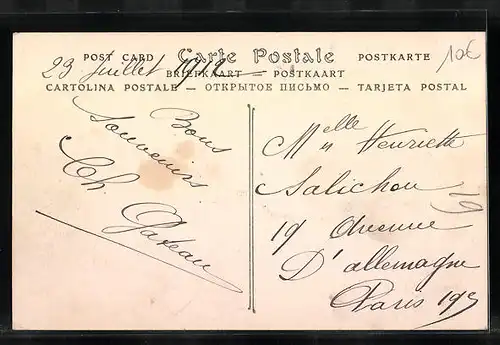 POST CARD Carte Postale POSTKARTE
23 Juillet 1912
BRIEFKAART — POSTKAART
CARTOLINA POSTALE — ОТКРЫТОЕ ПИСЬМО — TARJETA POSTAL
10€
Bons
Souvenirs
Ch. Gateau
Melle Henriette
Salichon
19 Avenue
D'allemagne
Paris 19e
19